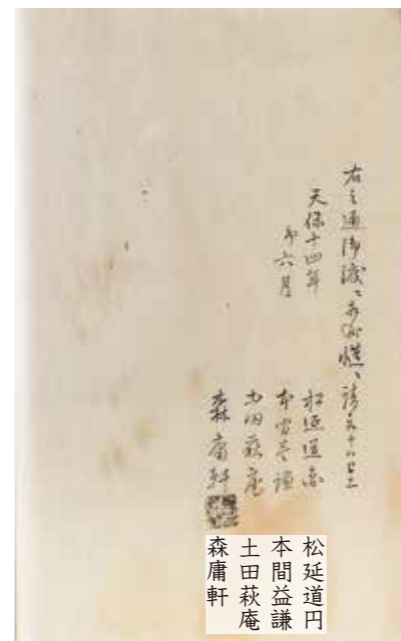 右之通御渡ニ
天保十四年
卯六月
松延道円
本間益謙
土田萩庵
森庸軒
松延道円
本間益謙
土田萩庵
森庸軒